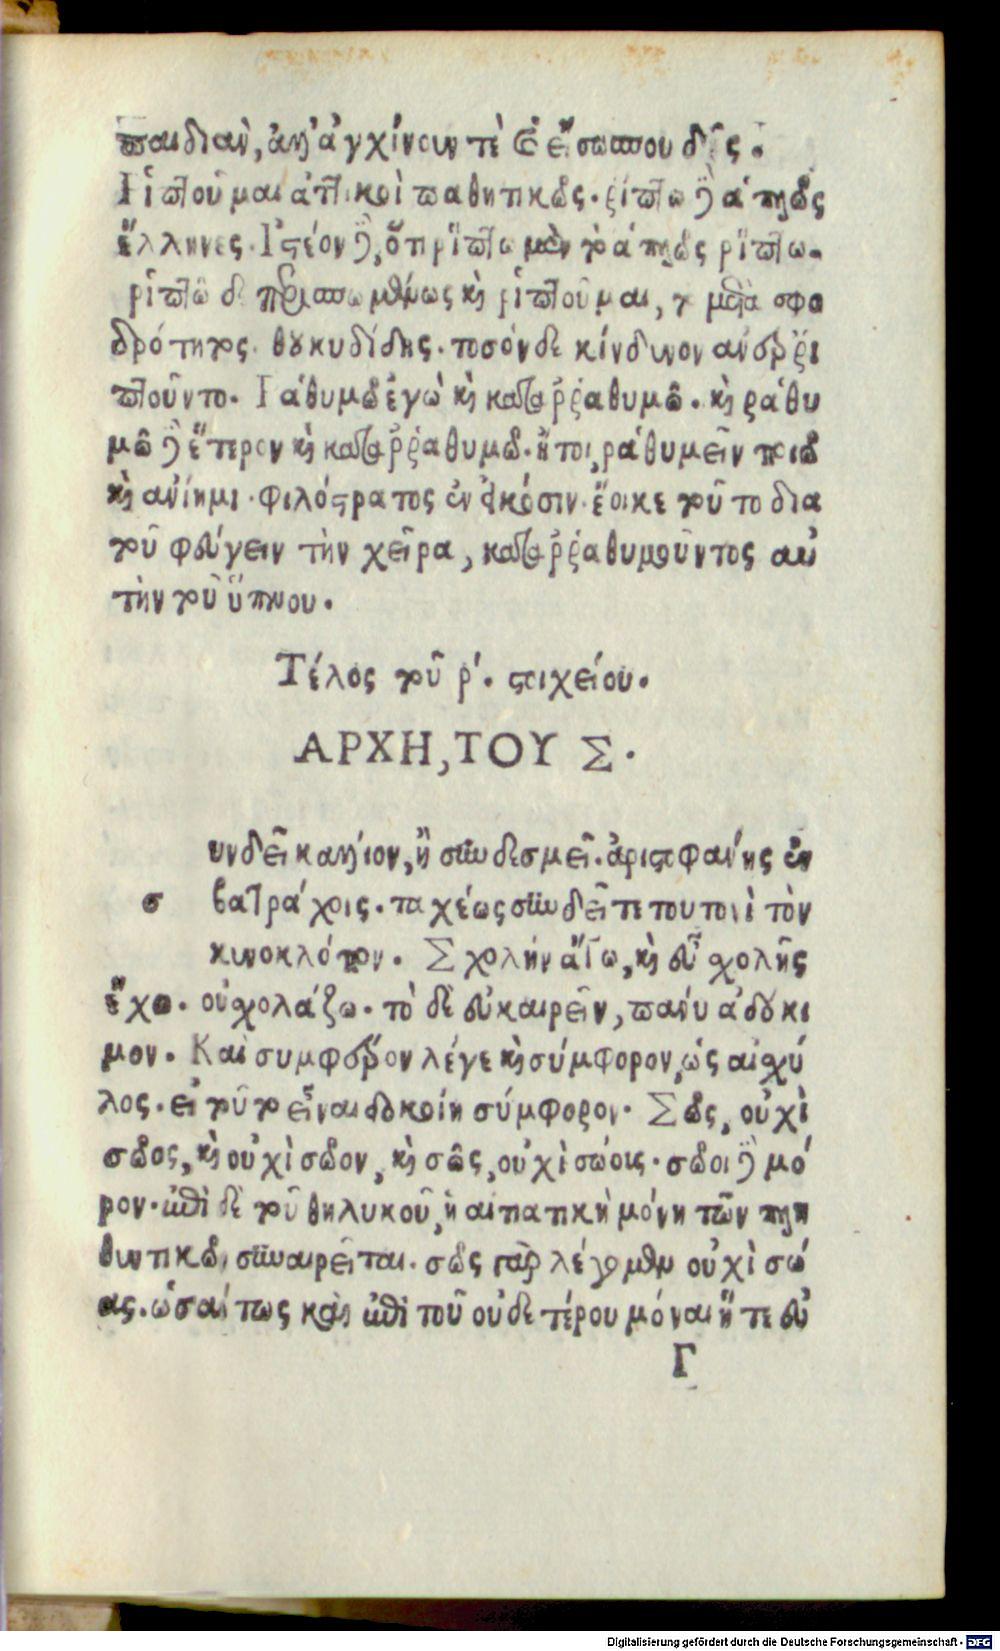 παιδιαν, ἀλλ' ἀγχίνουν τὶ καὶ ἐίσωπου δῆς.
Ριπτοῦμαι ἀττικοὶ παθητικῶς. ρίπτω δὲ ἁπλῶς
ἕλληνες. Ιστέον δὲ, ὅτι ρίπτω μὲν τὸ ἁπλῶς ρίπτω.
ριπτῶ δὲ καὶ ριπτοῦμαι, τὸ μετὰ σφο
δρότητος. θουκυδίδης. τοσόνδε κίνδυνον ἀνερρι
πτοῦντο. Ραθυμῶ ἐγὼ καὶ καταρραθυμῶ. καὶ ραθυ
μῶ δὲ ἕτερον καὶ καταρραθυμῶ. ἤτοι ραθυμεῖν ποιῶ
καὶ ἀνίημι. φιλόστρατος ἐν εἰκόσιν. ἔοικε τοῦτο δια
φεύγειν τὴν χεῖρα, καταρραθυμοῦντος αυ
τὴν τοῦ ὕπνου.
Τέλος τοῦ ρ'. στοιχείου.
ΑΡΧΗ, ΤΟΥ Σ.
υνδεῖ κάλλιον, ἢ συνδεσμεῖ. ἀριστοφάνης ἐν
σ βατράχοις. ταχέως συνδεῖτε τουτονὶ τὸν
κυνοκλόπον. Σχολὴν ἄγω, καὶ εὖ σχολῆς
ἔχω. οὐ σχολάζω. τὸ δὲ εὐκαιρεῖν, πάνυ ἀδόκι
μον. Καὶ συμφέρον λέγε καὶ σύμφορον, ὡς αἰσχύ
λος. εἰ τοῦτ' εἶναι δοκοίη σύμφορον. Σῶς, οὐχὶ
σῶος, καὶ οὐχὶ σῶον, καὶ σῶς, οὐχὶ σώοις. σῶοι δὲ μό
ρον. ἐπὶ δὲ τοῦ θηλυκοῦ, ἡ αιτιατικὴ μόνη τῶν πλη
θυντικῶν συναιρεῖται. σῶς γὰρ λέγομεν οὐχὶ σώ
ας. ὡσαύτως καὶ ἐπὶ τοῦ οὐδετέρου μόναι ἥ τε εὐ
Γ
Digitalisierung gefördert durch die Deutsche Forschungsgemeinschaft - DFG